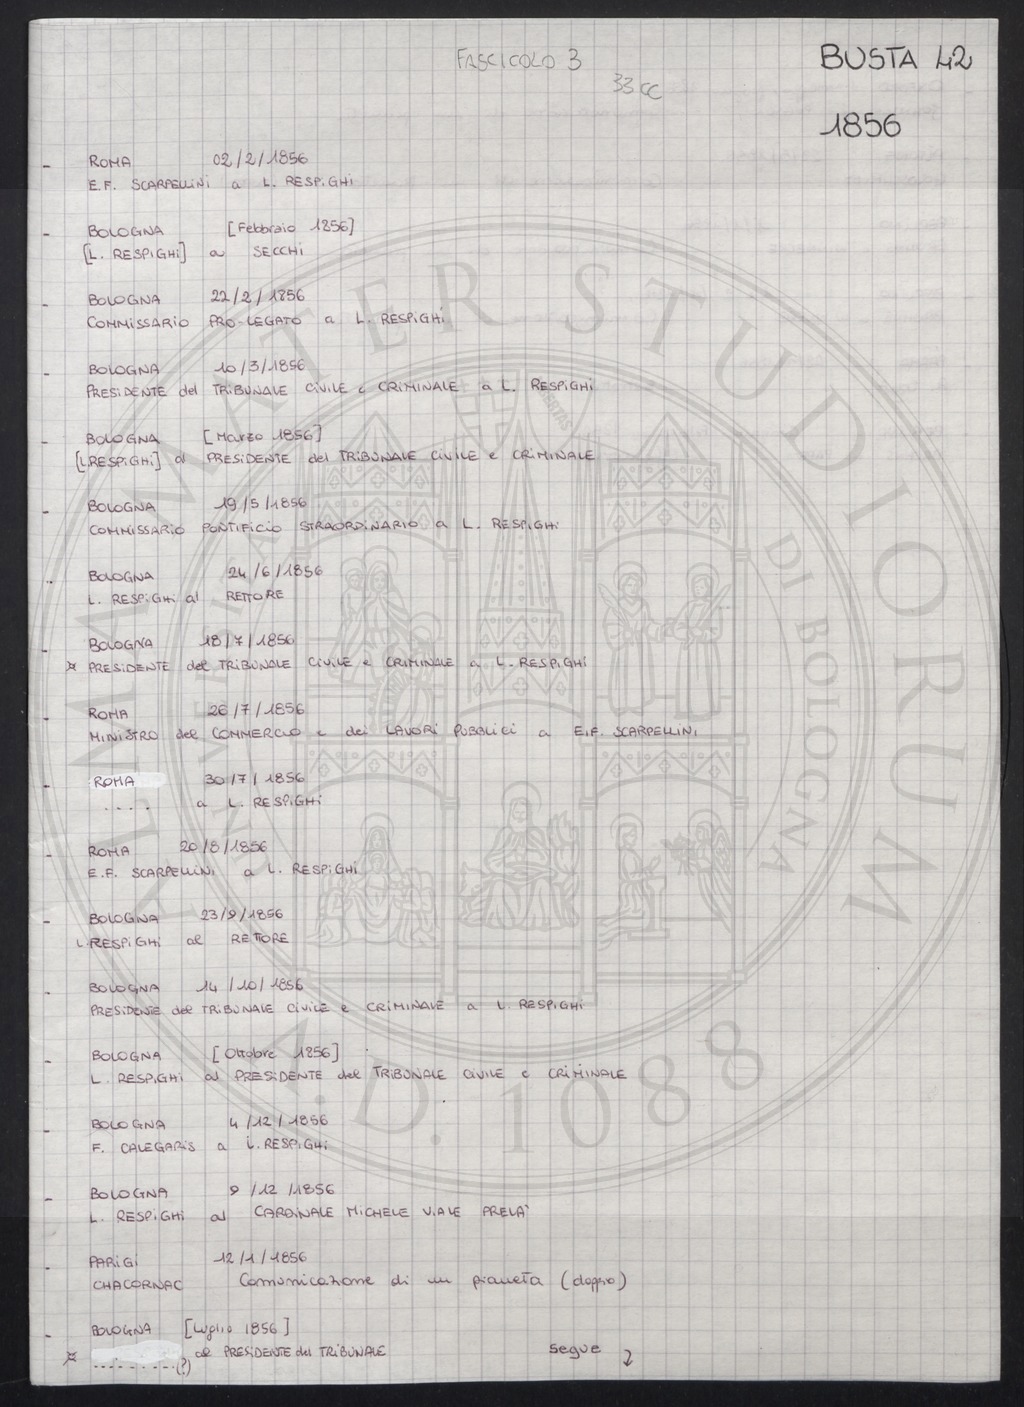 FASCICOLO 3
BUSTA 42
33 cc
1856
- ROMA 02/2/1856
E.F. SCARPELLINI a L. RESPIGHI
- BOLOGNA [Febbraio 1856]
[L. RESPIGHI] a SECCHI
- BOLOGNA 22/2/1856
COMMISSARIO PRO-LEGATO a L. RESPIGHI
- BOLOGNA 10/3/1856
PRESIDENTE del TRIBUNALE CIVILE e CRIMINALE a L. RESPIGHI
- BOLOGNA [Marzo 1856]
[L.RESPIGHI] al PRESIDENTE del TRIBUNALE CIVILE e CRIMINALE
- BOLOGNA 19/5/1856
COMMISSARIO PONTIFICIO STRAORDINARIO a L. RESPIGHI
- BOLOGNA 24/6/1856
L. RESPIGHI al RETTORE
- BOLOGNA 18/7/1856
¤ PRESIDENTE del TRIBUNALE CIVILE e CRIMINALE a L. RESPIGHI
- ROMA 26/7/1856
MINISTRO del COMMERCIO e dei LAVORI PUBBLICI a E.F. SCARPELLINI
- ROMA 30/7/1856
.... a L. RESPIGHI
- ROMA 20/8/1856
E.F. SCARPELLINI a L. RESPIGHI
- BOLOGNA 23/9/1856
L.RESPIGHI al RETTORE
- BOLOGNA 14/10/1856
PRESIDENTE del TRIBUNALE CIVILE e CRIMINALE a L. RESPIGHI
- BOLOGNA [Ottobre 1856]
L. RESPIGHI al PRESIDENTE del TRIBUNALE CIVILE e CRIMINALE
- BOLOGNA 4/12/1856
F. CALEGARIS a L. RESPIGHI
- BOLOGNA 9/12/1856
L. RESPIGHI al CARDINALE MICHELE VIALE PRELA'
- PARIGI 12/1/1856
CHACORNAC Comunicazione di un pianeta (doppio)
- BOLOGNA [Luglio 1856]
¤ .........(?) al PRESIDENTE del TRIBUNALE segue
ALMA MATER STUDIORUM
UNIVERSITÀ DI BOLOGNA
LIBERTAS
A.D. 1088